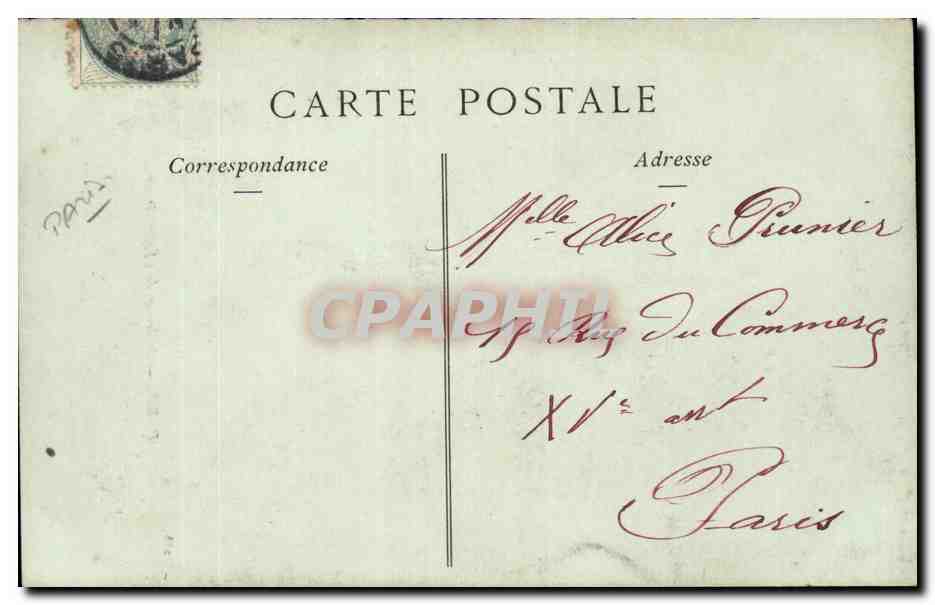 CARTE POSTALE
Correspondance
Adresse
PARIS
Melle Alice Prunier
CPAPHIL
Rue du Commerce
XVe arrt
Paris